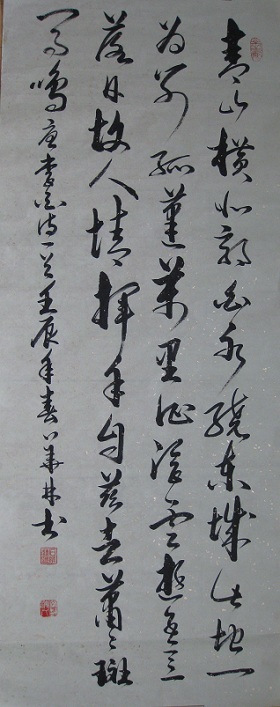 青山横北郭白水绕东城此地一
为别孤蓬萬里征浮雲游子意
落日故人情揮手自茲去蕭々斑
马鸣 唐李白诗一首壬辰年春林书